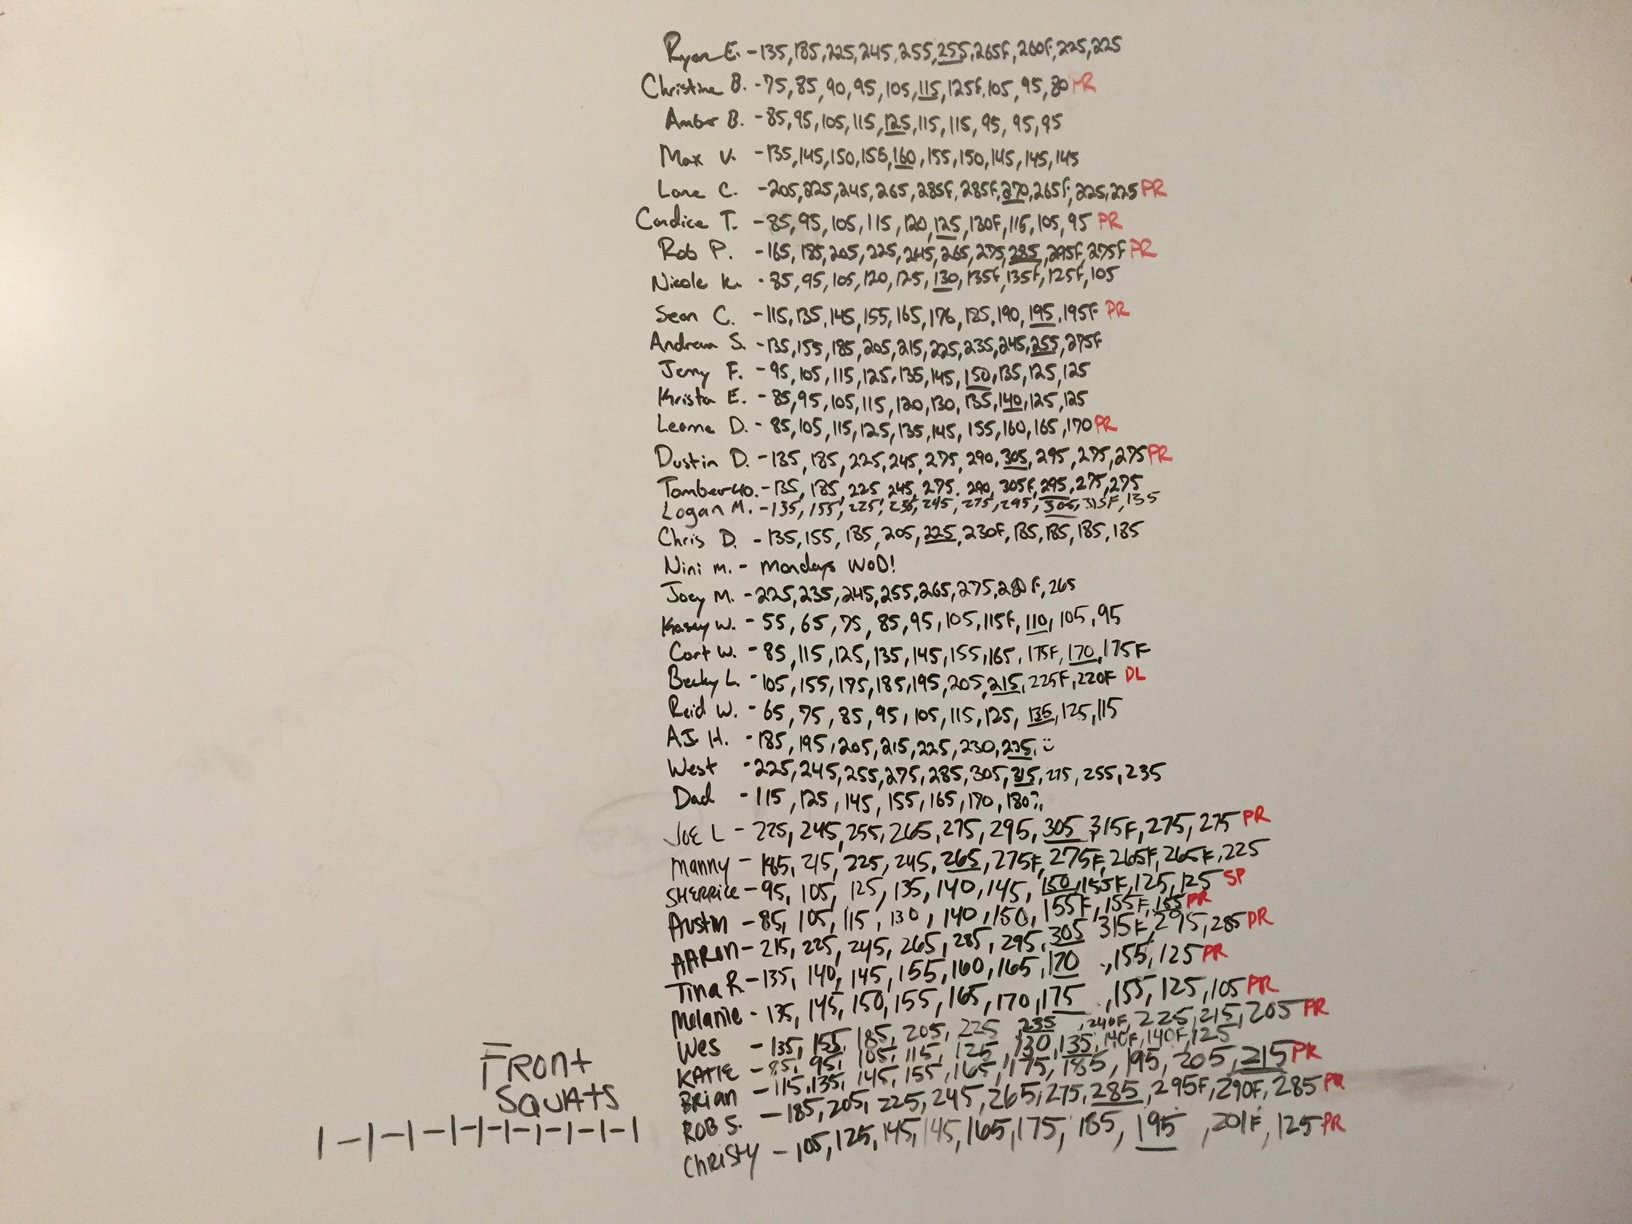 Ryan E. - 135, 185, 225, 245, 255, 255, 265F, 260F, 225, 225
Christine B. - 75, 85, 90, 95, 105, 115, 125F, 105, 95, 80 PR
Amber B. - 85, 95, 105, 115, 125, 115, 115, 95, 95, 95
Max V. - 135, 145, 150, 155, 160, 155, 150, 145, 145, 145
Lane C. - 205, 225, 245, 265, 285F, 285F, 270, 265F, 225, 225 PR
Candice T. - 85, 95, 105, 115, 120, 125, 130F, 115, 105, 95 PR
Rob P. - 165, 185, 205, 225, 245, 265, 275, 285, 295F, 275F PR
Nicole K. - 85, 95, 105, 120, 125, 130, 135F, 135F, 125F, 105
Sean C. - 115, 135, 145, 155, 165, 176, 185, 190, 195, 195F PR
Andrew S. - 135, 155, 185, 205, 215, 225, 235, 245, 255, 275F
Jenny F. - 95, 105, 115, 125, 135, 145, 150, 135, 125, 125
Krista E. - 85, 95, 105, 115, 120, 130, 135, 140, 125, 125
Leanne D. - 85, 105, 115, 125, 135, 145, 155, 160, 165, 170 PR
Dustin D. - 135, 185, 225, 245, 275, 290, 305, 295, 275, 275 PR
- 135, 185, 225, 245, 275, 290, 305F, 295, 275, 275
Logan M. - 135, 155, 225, 235, 245, 275, 295, 305, 315F, 135
Chris D. - 135, 155, 185, 205, 225, 230F, 185, 185, 185, 185
Nini M. - Mondays WOD!
Joey M. - 225, 235, 245, 255, 265, 275, 280F, 265
Kasey W. - 55, 65, 75, 85, 95, 105, 115F, 110, 105, 95
Cort W. - 85, 115, 125, 135, 145, 155, 165, 175F, 170, 175F
Becky L. - 105, 155, 175, 185, 195, 205, 215, 225F, 220F DL
Reid W. - 65, 75, 85, 95, 105, 115, 125, 135, 125, 115
AJ H. - 185, 195, 205, 215, 225, 230, 235, :)
West - 225, 245, 255, 275, 285, 305, 315, 275, 255, 235
Dad - 115, 125, 145, 155, 165, 170, 180?,
JOE L - 225, 245, 255, 265, 275, 295, 305, 315F, 275, 275 PR
Manny - 185, 215, 225, 245, 265, 275F, 275F, 265F, 265F, 225
SHERRICE - 95, 105, 125, 135, 140, 145, 150, 155F, 125, 125 SP
Austin - 85, 105, 115, 130, 140, 150, 155F, 155F, 155 PR
AARON - 215, 225, 245, 265, 285, 295, 305, 315F, 295, 285 PR
Tina R - 135, 140, 145, 155, 160, 165, 170, 155, 125 PR
Melanie - 135, 145, 150, 155, 165, 170, 175, 155, 125, 105 PR
Wes - 135, 155, 185, 205, 225, 235, 240F, 225, 215, 205 PR
KATIE - 85, 95, 105, 115, 125, 130, 135, 140F, 140F, 125
BRian - 115, 135, 145, 155, 165, 175, 185, 195, 205, 215 PR
ROB S. - 185, 205, 225, 245, 265, 275, 285, 295F, 290F, 285 PR
Christy - 105, 125, 145, 145, 165, 175, 185, 195, 201F, 125 PR
FRont
SQUAtS
1-1-1-1-1-1-1-1-1-1